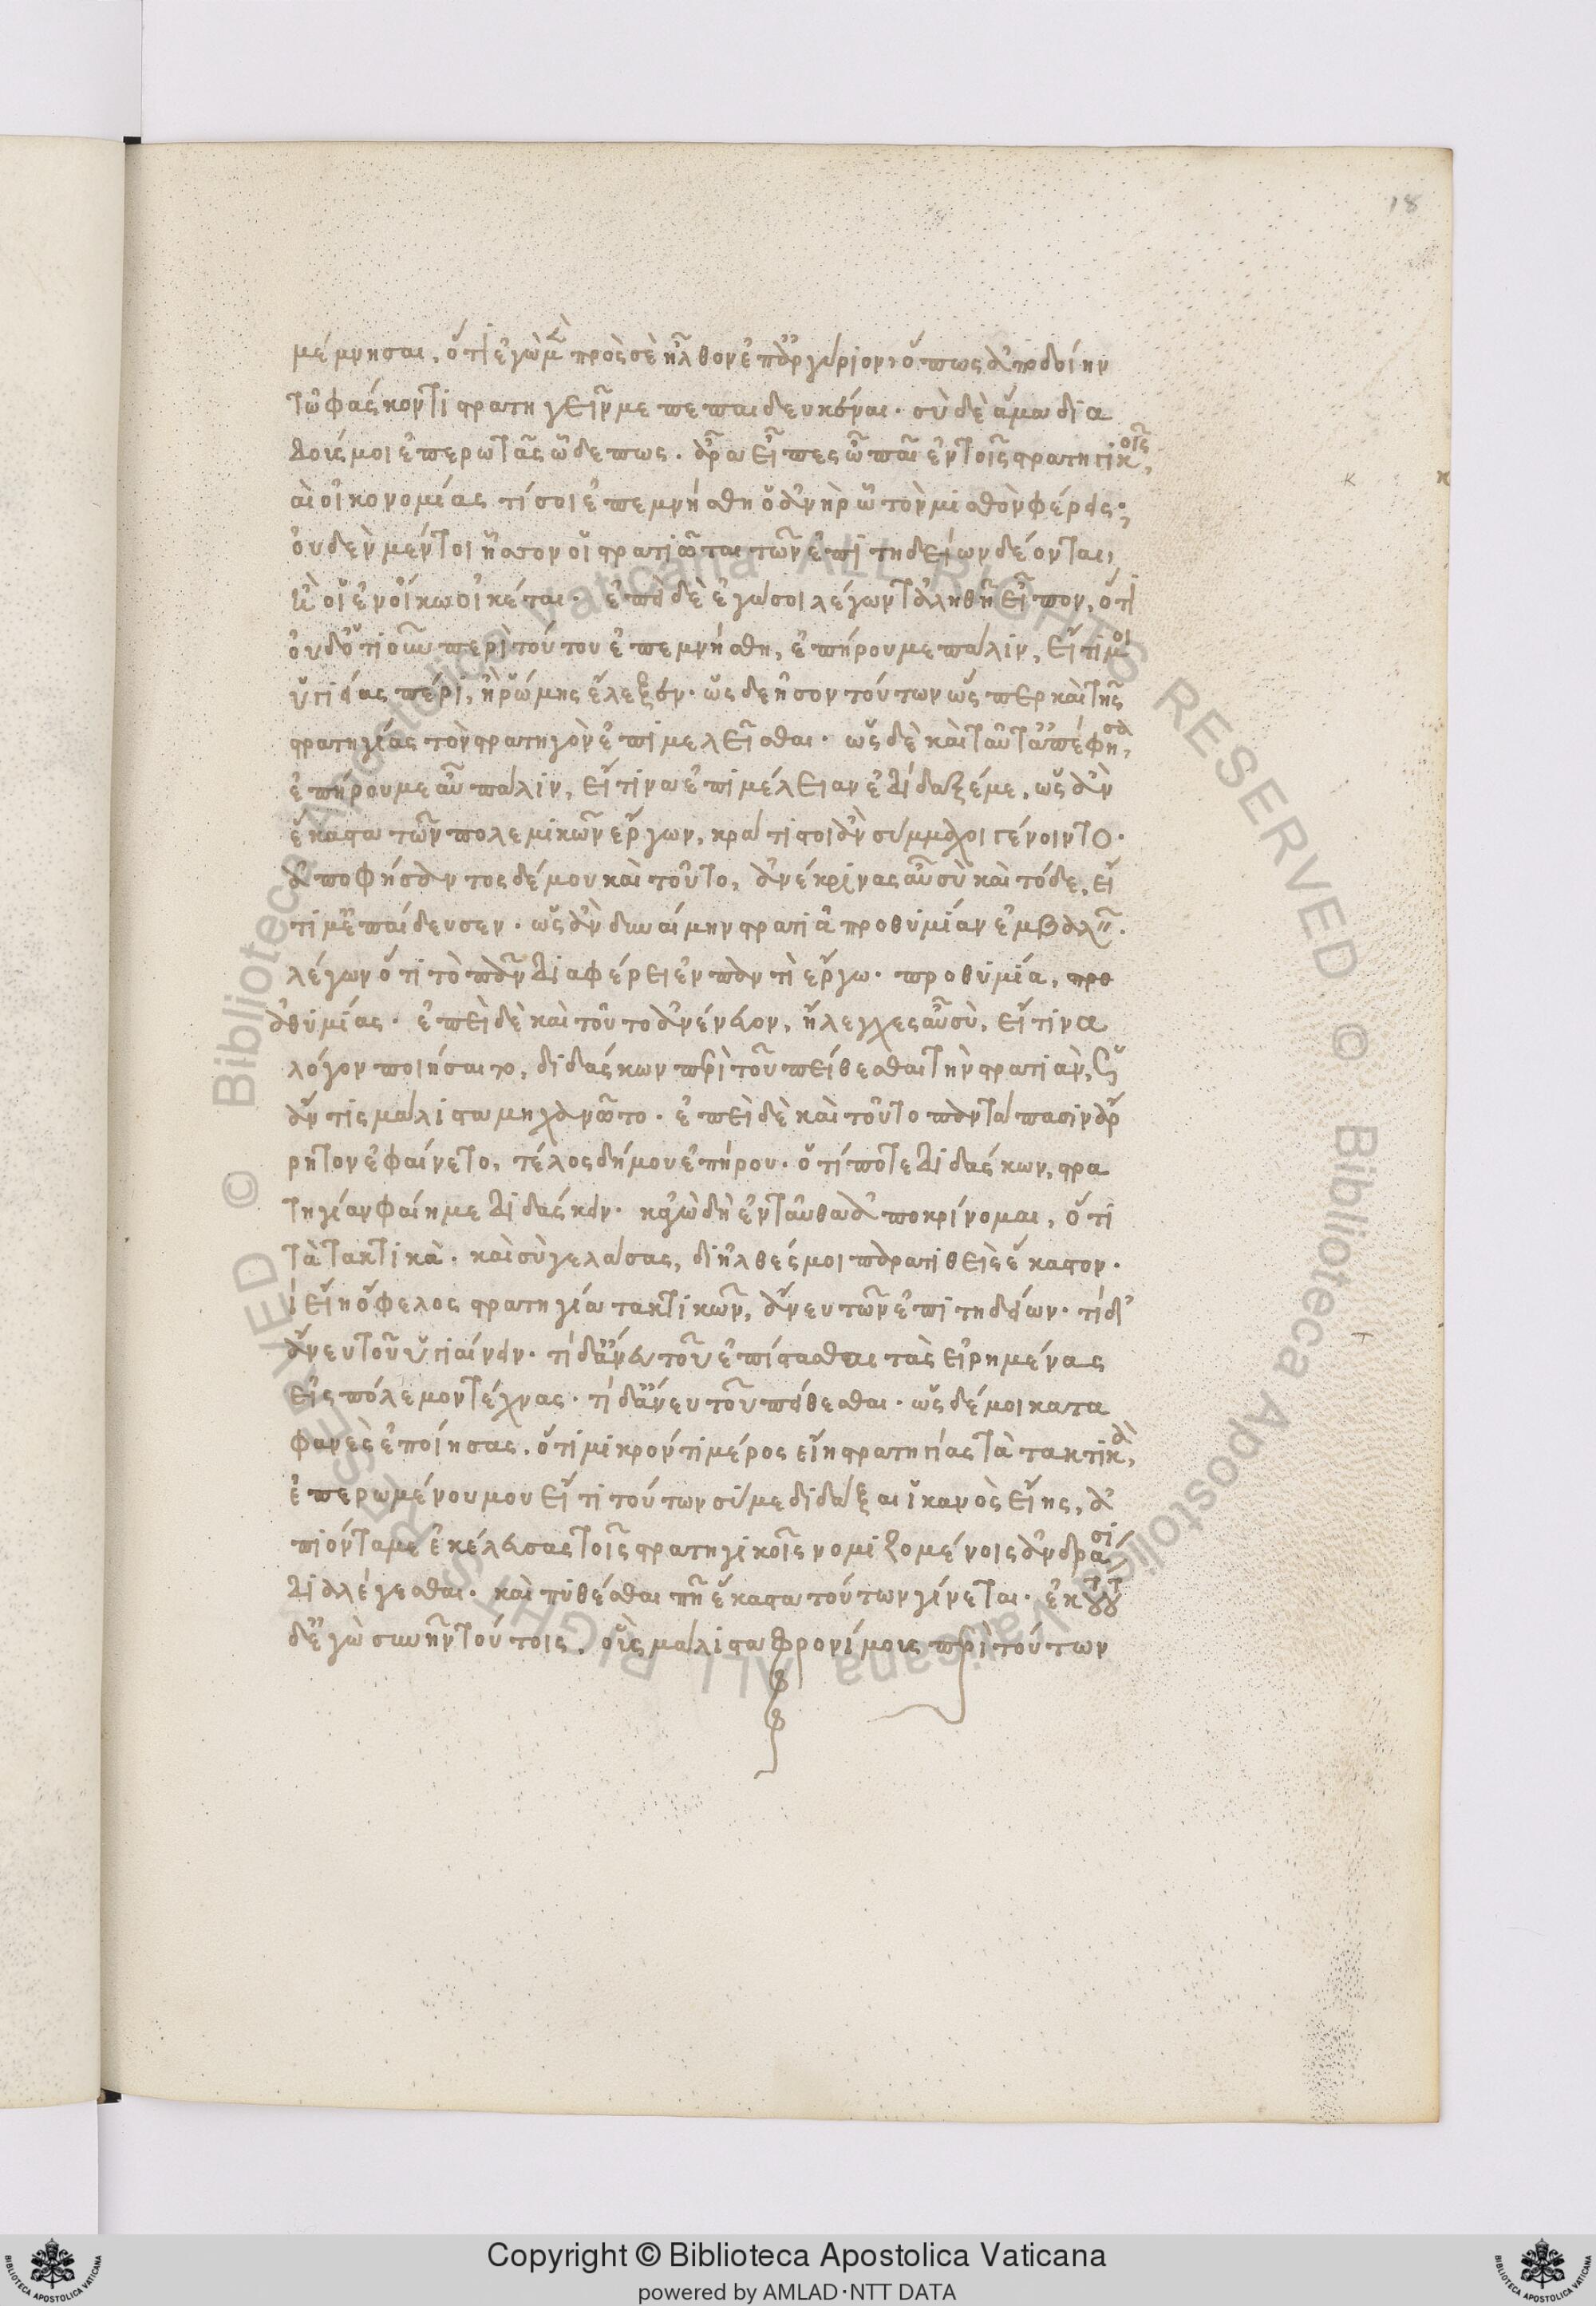 18
μέμνησαι, ὅτι ἐγὼ μὲν πρὸς σὲ ἦλθον ἐπ' ἀργύριον, ὅπως ἀποδοίην
τῷ φάσκοντι στρατηγεῖν με πεπαιδευκέναι. σὺ δὲ ἅμα δια
δούς μοι ἐπερωτᾶς ὧδέ πως. ἆρα εἶπες ὦ παῖ ἐν τοῖς στρατηγικοῖς,
αἰ οἰκονομίας τί σοι ἐπεμνήσθη ὁ ἀνὴρ ᾧ τὸν μισθὸν φέρεις;
οὐδὲν μέντοι ἧσσον οἱ στρατιῶται τῶν ἐπιτηδείων δέονται,
ἢ οἱ ἐν οἴκῳ οἰκέται. ἐπεὶ δὲ ἐγώ σοι λέγων τἀληθῆ εἶπον, ὅτι
οὐδ' ὁτιοῦν περὶ τούτου ἐπεμνήσθη, ἐπήρου με πάλιν, εἴ τί μοι
ὑγιείας πέρι, ἢ ῥώμης ἔλεξεν. ὡς δεῆσον τούτων ὥσπερ καὶ τῆς
στρατηγίας τὸν στρατηγὸν ἐπιμελεῖσθαι. ὡς δὲ καὶ ταῦτ' ἀπέφησα,
ἐπήρου με αὖ πάλιν, εἴ τινα ἐπιμέλειαν ἐδίδαξέ με, ὡς ἂν
ἕκαστα τῶν πολεμικῶν ἔργων, κράτιστοι ἂν σύμμαχοι γένοιντο.
ἀποφήσαντος δέ μου καὶ τοῦτο, ἀνέκρινας αὖ σὺ καὶ τόδε, εἴ
τί μ' ἐπαίδευσεν. ὡς ἂν δυναίμην στρατιᾷ προθυμίαν ἐμβαλεῖν.
λέγων ὅτι τὸ πᾶν διαφέρει ἐν παντὶ ἔργῳ. προθυμία, προ
ἀθυμίας. ἐπεὶ δὲ καὶ τοῦτο ἀνένευον, ἤλεγχες αὖ σὺ, εἴ τινα
λόγον ποιήσαιτο, διδάσκων περὶ τοῦ πείθεσθαι τὴν στρατιὰν, ὡς
ἄν τις μάλιστα μηχανῷτο. ἐπεὶ δὲ καὶ τοῦτο παντάπασιν ἄρ
ρητον ἐφαίνετο, τέλος δή μου ἐπήρου. ὅ τί ποτε διδάσκων, στρα
τηγίαν φαίη με διδάσκειν. κἀγὼ δὴ ἐνταῦθα ἀποκρίνομαι, ὅτι
τὰ τακτικὰ. καὶ σὺ γελάσας, διῆλθές μοι παρατιθεὶς ἕκαστον.
τί εἴη ὄφελος στρατηγίᾳ τακτικῶν, ἄνευ τῶν ἐπιτηδείων. τί δ'
ἄνευ τοῦ ὑγιαίνειν. τί δ' ἄνευ τοῦ ἐπίστασθαι τὰς εἰρημένας
εἰς πόλεμον τέχνας. τί δ' ἄνευ τοῦ πείθεσθαι. ὡς δέ μοι κατα
φανὲς ἐποίησας. ὅτι μικρόν τι μέρος εἴη στρατηγίας τὰ τακτικὰ,
ἐπερωμένου μου εἴ τι τούτων σύ με διδάξαι ἱκανὸς εἴης, ἀ
πιόντα με ἐκέλευσας τοῖς στρατηγικοῖς νομιζομένοις ἀνδράσι
διαλέγεσθαι. καὶ πυθέσθαι πῆ ἕκαστα τούτων γίνεται. ἐκ τούτου
δ' ἐγὼ συνῆν τούτοις, οὓς μάλιστα φρονίμους περὶ τούτων
Copyright © Biblioteca Apostolica Vaticana
powered by AMLAD·NTT DATA